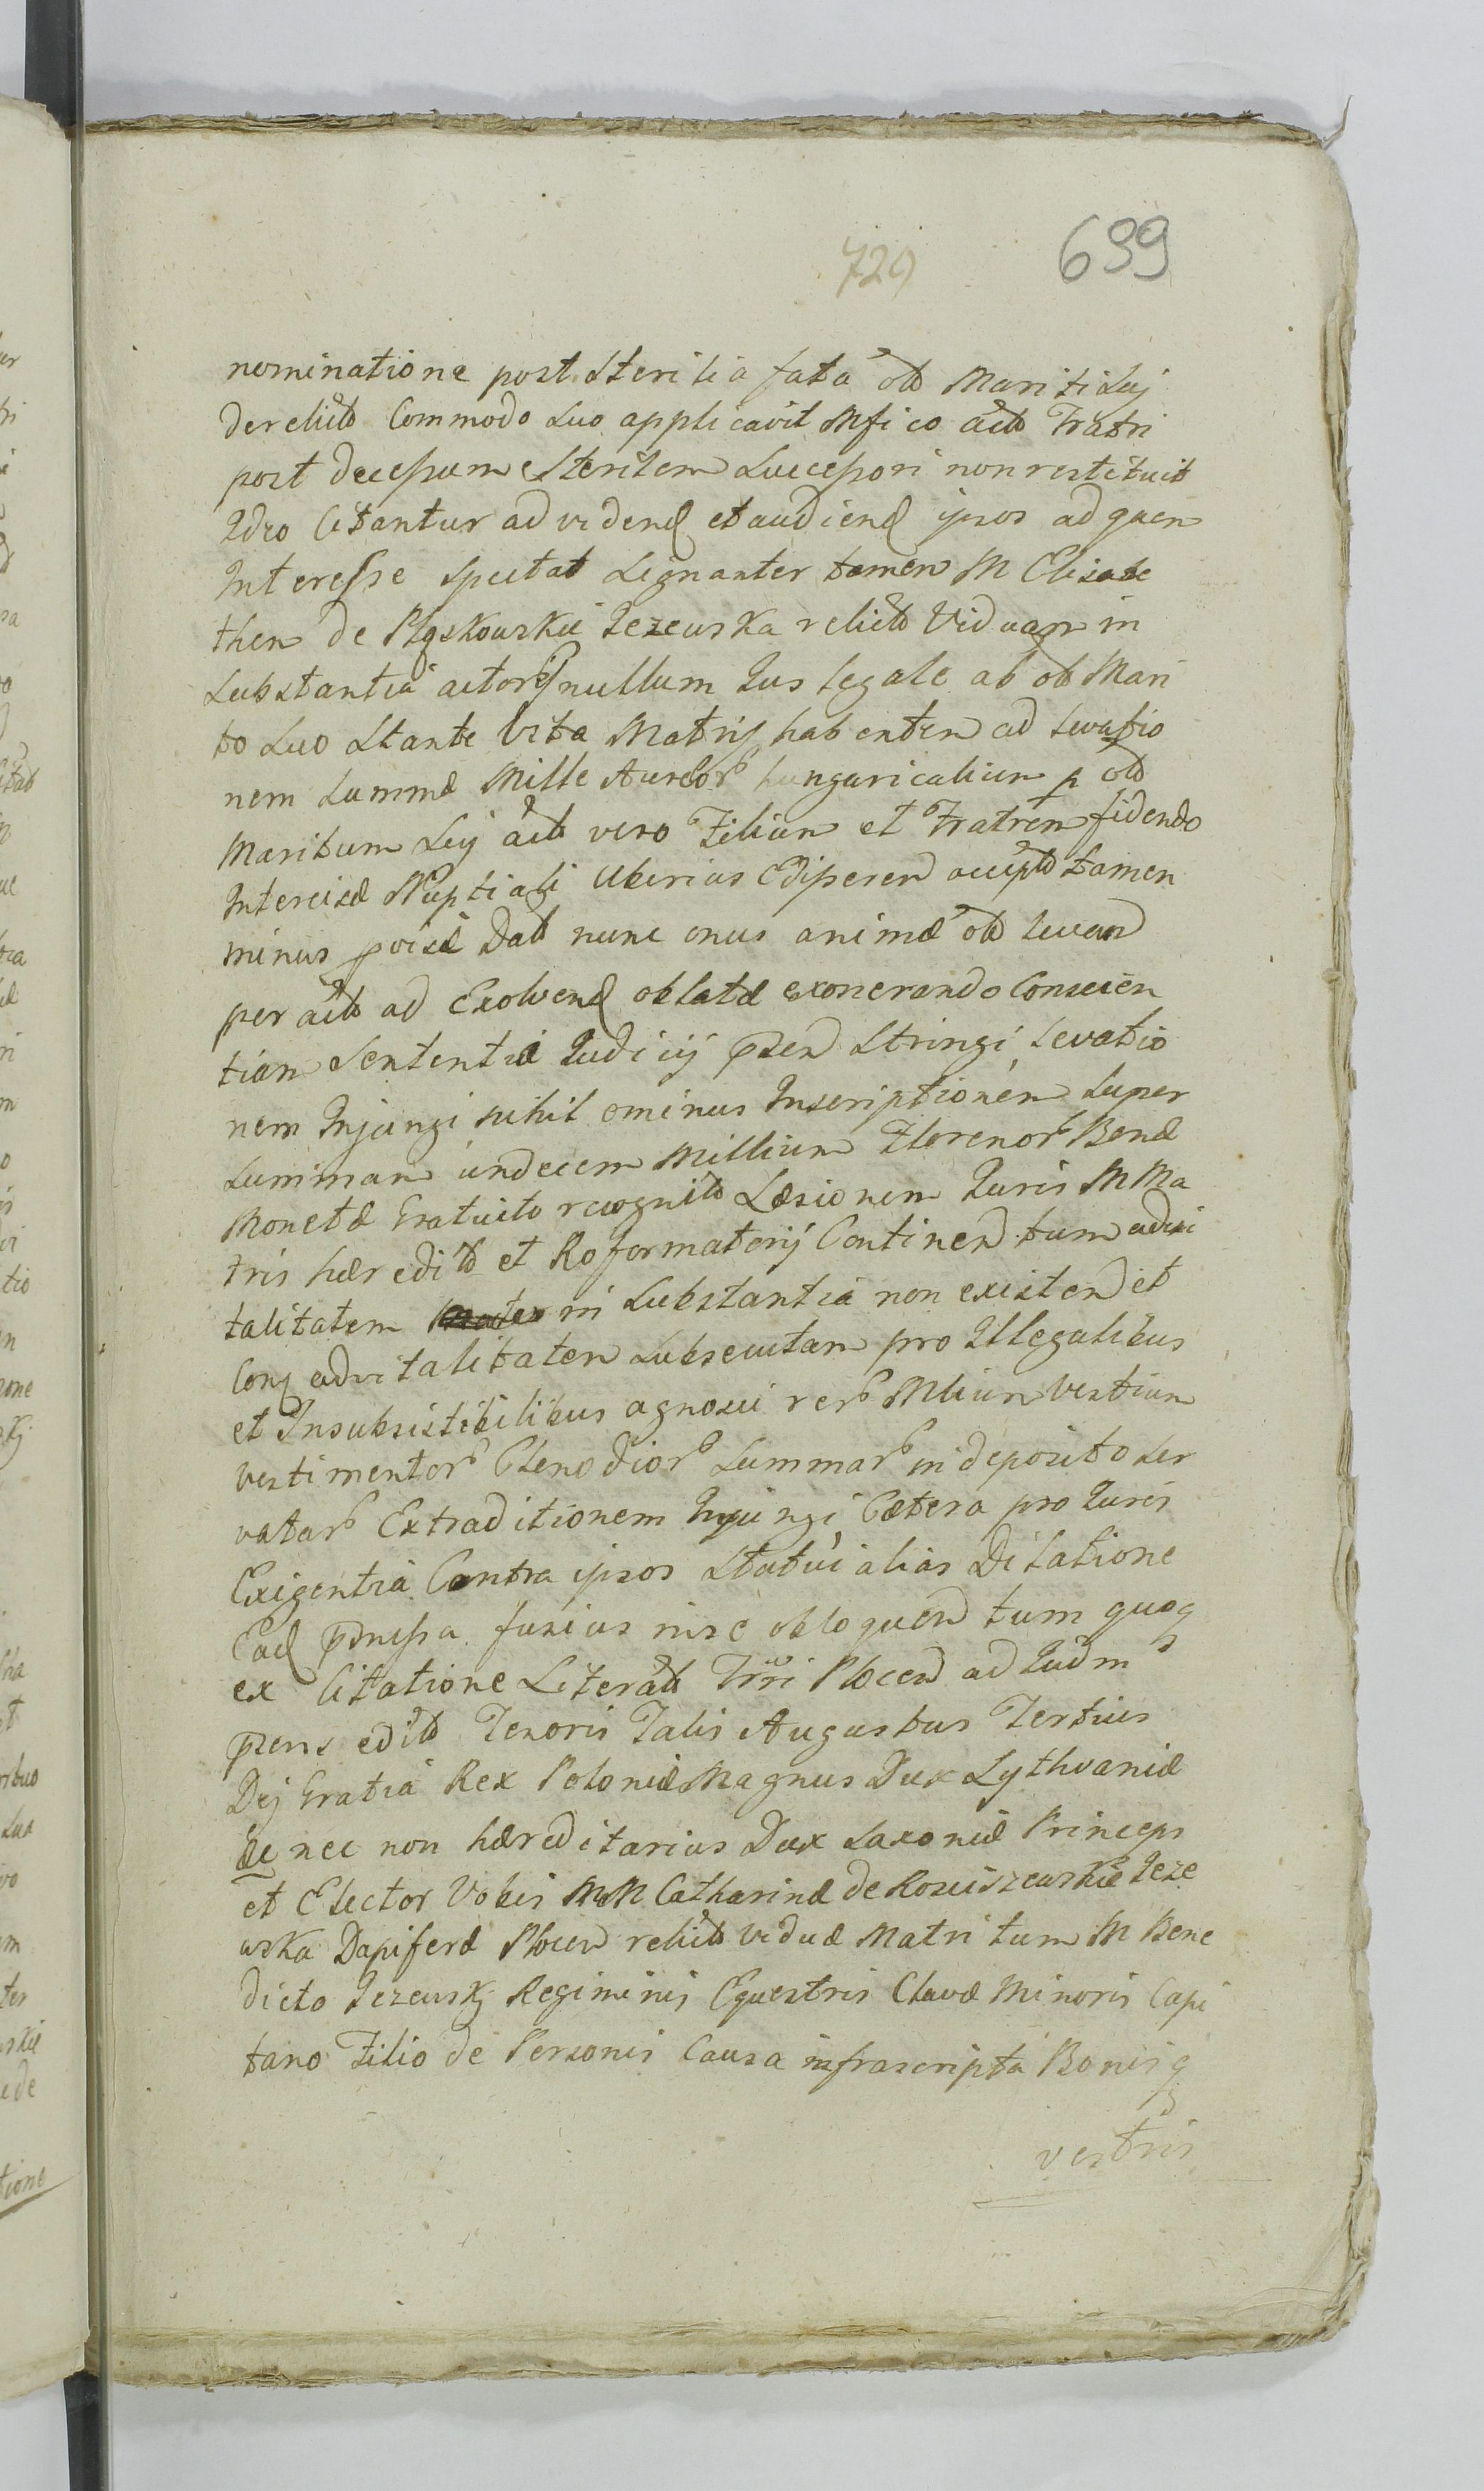 729 699
nominatione post sterilia fata olt Mariti Suj
derelict Commodo suo applicavit Mfico act Fratri
post decessum sterilem Successori non restituit
Ideo Citantur ad vidend et audiend ipsos ad quem
Interesse spectat signanter tamen M Elisabe
them de Pląskowskie Jezewska relict Viduam in
Substantia actor nullum Jus legale ab olt Mari
to Suo Stante Vita Matris habentem ad levatio
nem Summæ Mille Aureor hungaricalium p olt
Maritum Suj act vero Filium et Fratrem fidendo
Intercisæ Nuptiali Uberius Edisseren accept tamen
minus poise Dat nunc onus animæ olt levand
per act ad Exolvend oblatæ exonerando Conscien
tiam Sententiæ Judicij præsen Stringi, levatio
nem Injungi nihil ominus Inscriptionem super
Summam undecem Millium Florenor Bonæ
Monetæ Gratuito recognit Læsionem Juris M Ma
tris hæredit et Roformatorij Continen tum advi
talitatem in Substantia non existen et
Conq advitalitatem subsecutam pro Illegalibus
et Insubsistibilibus agnosci rer Mlium Vestium
vestimentor Clenodior Summar in deposito ser
vatar Extraditionem Injungi, Cætera pro Juris
Exigentia Contra ipsos Statui alias Dilatione
Ead præmissa fusius nisc obloquen tum quoq
ex Citatione Literali Trri Plocen ad Judm
præns edit Tenoris Talis Augustus Tertius
Dej Gratia Rex Poloniæ Magnus Dux Lythvaniæ
&c nec non hæreditarius Dux Saxoniæ Princeps
et Elector Vobis MM Catharinæ de Rosciszewskie Jeze
wska Dapiferæ Plocen relict viduæ Matri tum M Bene
dicto Jezewskj Regiminis Equestris Clavæ Minoris Capi
tano Filio de Personis Causa infrascripta Bonisq
vestris